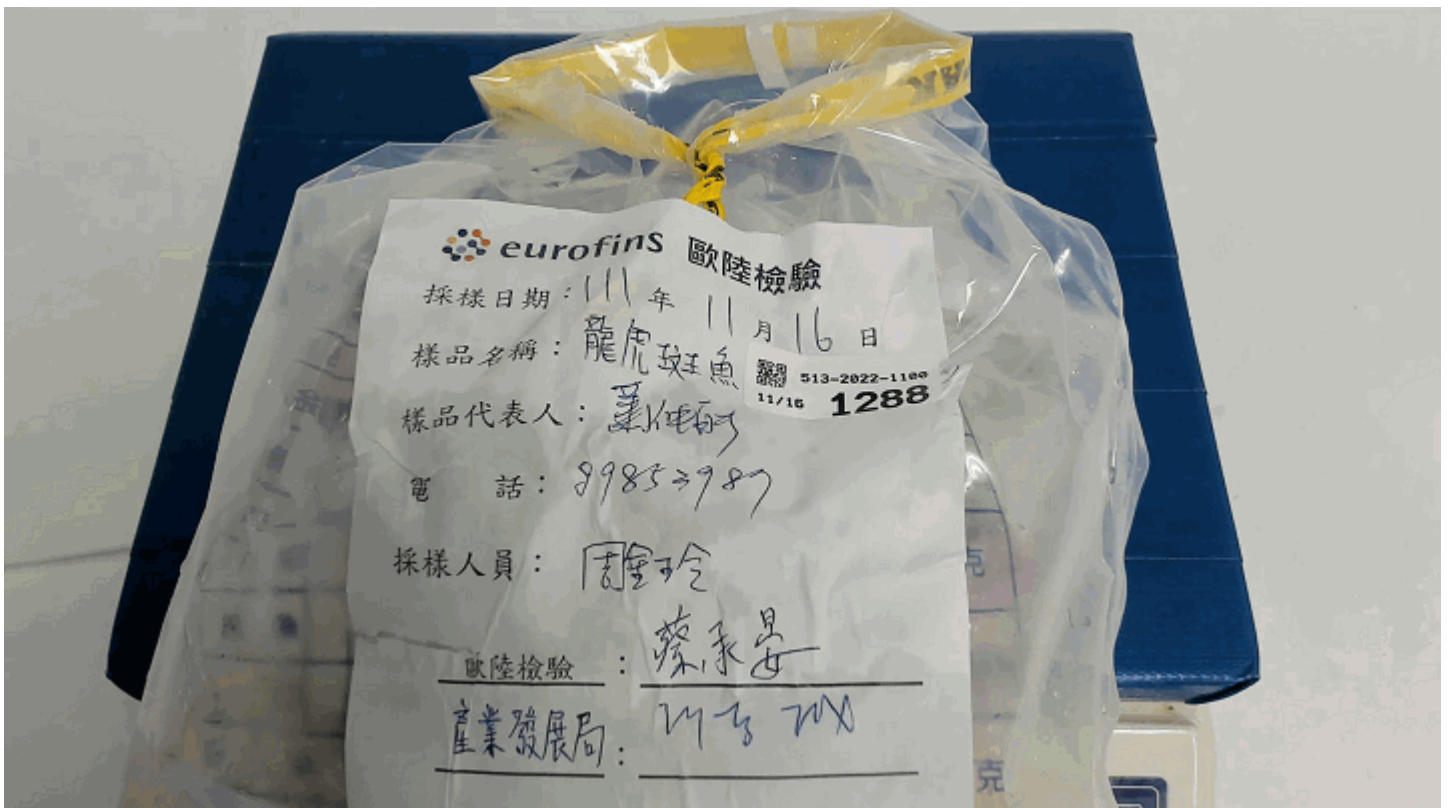 eurofins 歐陸檢驗
採樣日期：111 年 11 月 16 日
樣品名稱：龍虎斑魚
513-2022-1100
11/16 1288
樣品代表人：
電 話：89853987
採樣人員：周金玲
歐陸檢驗：蔡承晏
產業發展局：
克
克